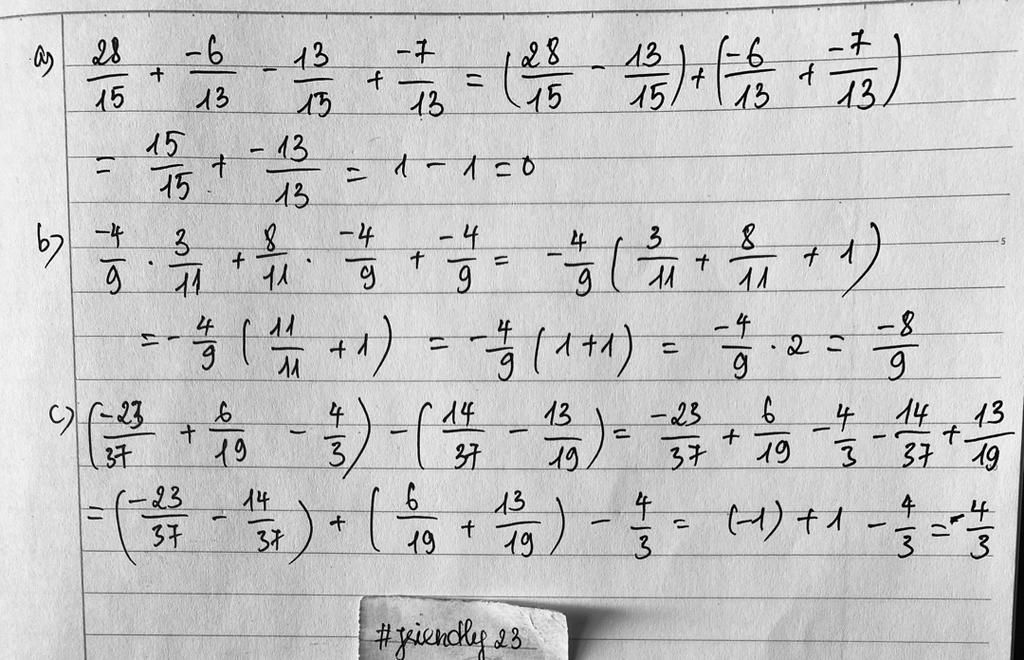 a) 28/15 + -6/13 - 13/15 + -7/13 = (28/15 - 13/15) + (-6/13 + -7/13)
= 15/15 + -13/13 = 1 - 1 = 0
b) -4/9 . 3/11 + 8/11 . -4/9 + -4/9 = -4/9 (3/11 + 8/11 + 1)
= -4/9 (11/11 + 1) = -4/9 (1+1) = -4/9 . 2 = -8/9
c) (-23/37 + 6/19 - 4/3) - (14/37 - 13/19) = -23/37 + 6/19 - 4/3 - 14/37 + 13/19
= (-23/37 - 14/37) + (6/19 + 13/19) - 4/3 = (-1) + 1 - 4/3 = -4/3
#friendly 23
5